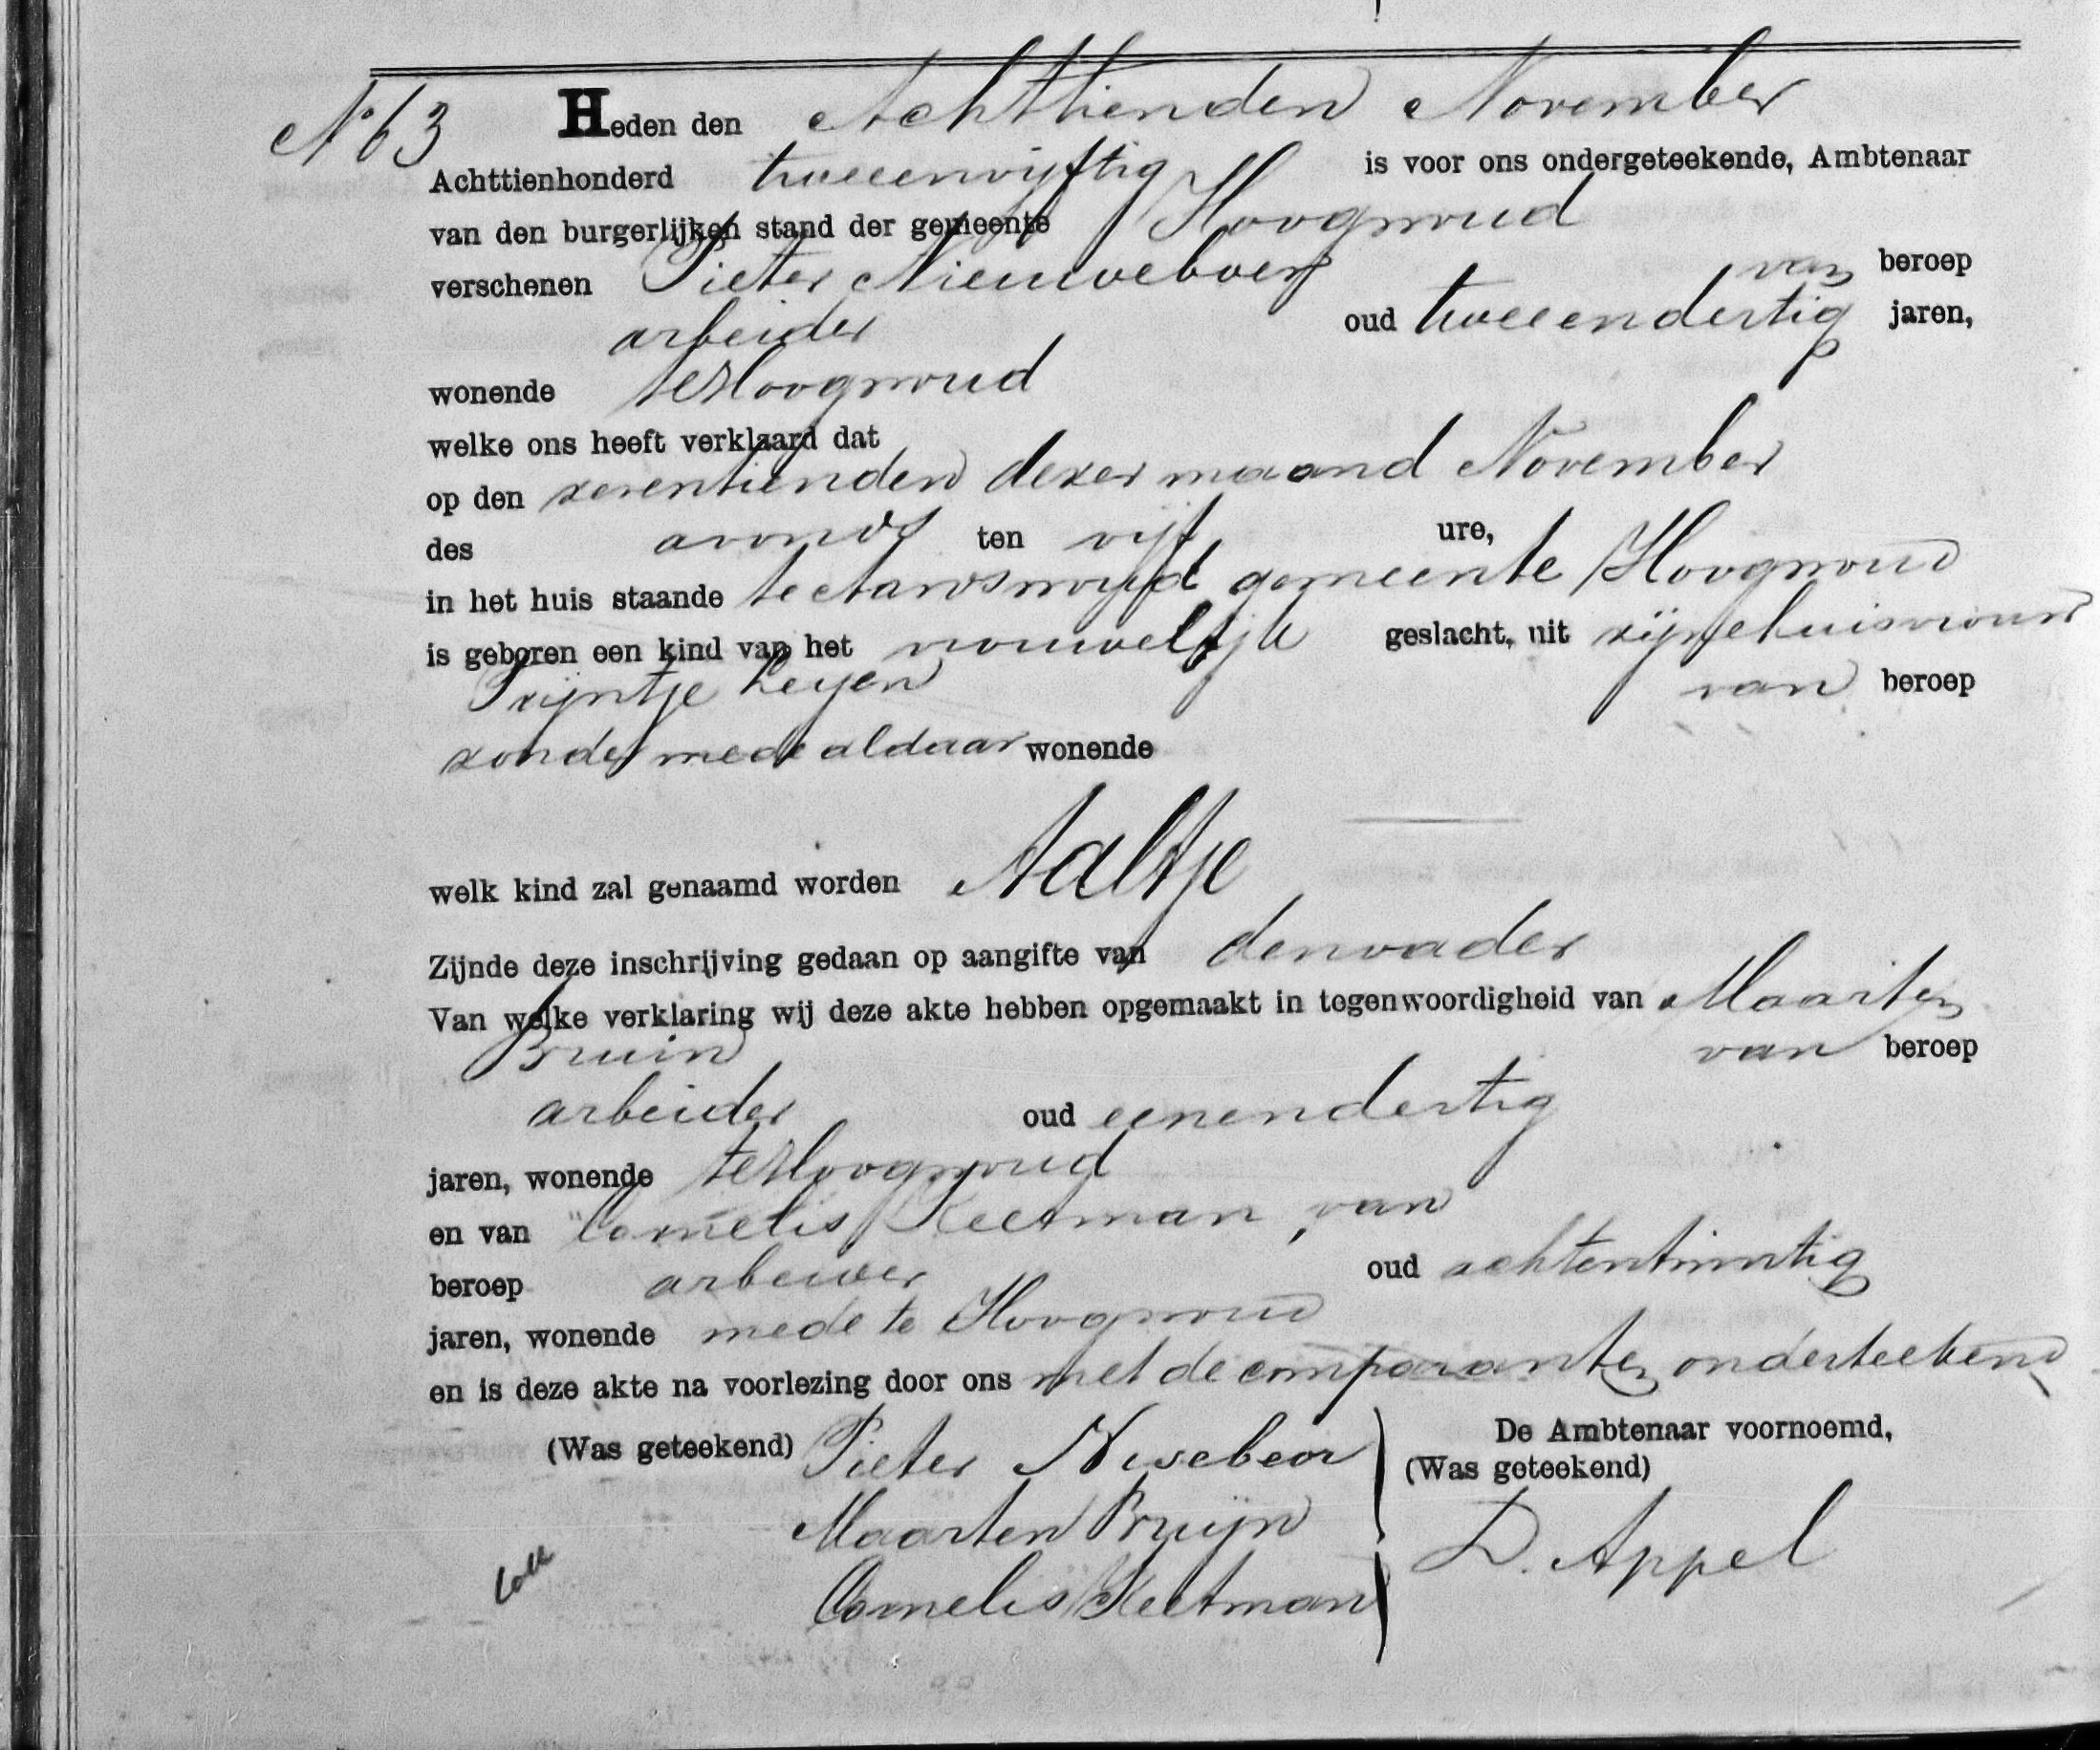 No 63 Heden den Achttienden November
Achttienhonderd tweeenvijftig is voor ons ondergeteekende, Ambtenaar
van den burgerlijken stand der gemeente Hoogwoud
verschenen Pieter Nieuweboer van beroep
arbeider oud tweeendertig jaren,
wonende te Hoogwoud
welke ons heeft verklaard dat
op den zeventienden dezer maand November
des avonds ten vijf ure,
in het huis staande te Aartswoud gemeente Hoogwoud
is geboren een kind van het vrouwelijk geslacht, uit zijne huisvrouw
Trijntje Leijen van beroep
zonder mede aldaar wonende
welk kind zal genaamd worden Aaltje
Zijnde deze inschrijving gedaan op aangifte van den vader
Van welke verklaring wij deze akte hebben opgemaakt in tegenwoordigheid van Maarten
Bruin van beroep
arbeider oud eenendertig
jaren, wonende te Hoogwoud
en van Cornelis Keetman, van
beroep arbeider oud achtentwintig
jaren, wonende mede te Hoogwoud
en is deze akte na voorlezing door ons met de comparanten onderteekend
(Was geteekend) Pieter
Maarten Bruijn
Cornelis Keetman
De Ambtenaar voornoemd,
(Was geteekend)
D. Appel